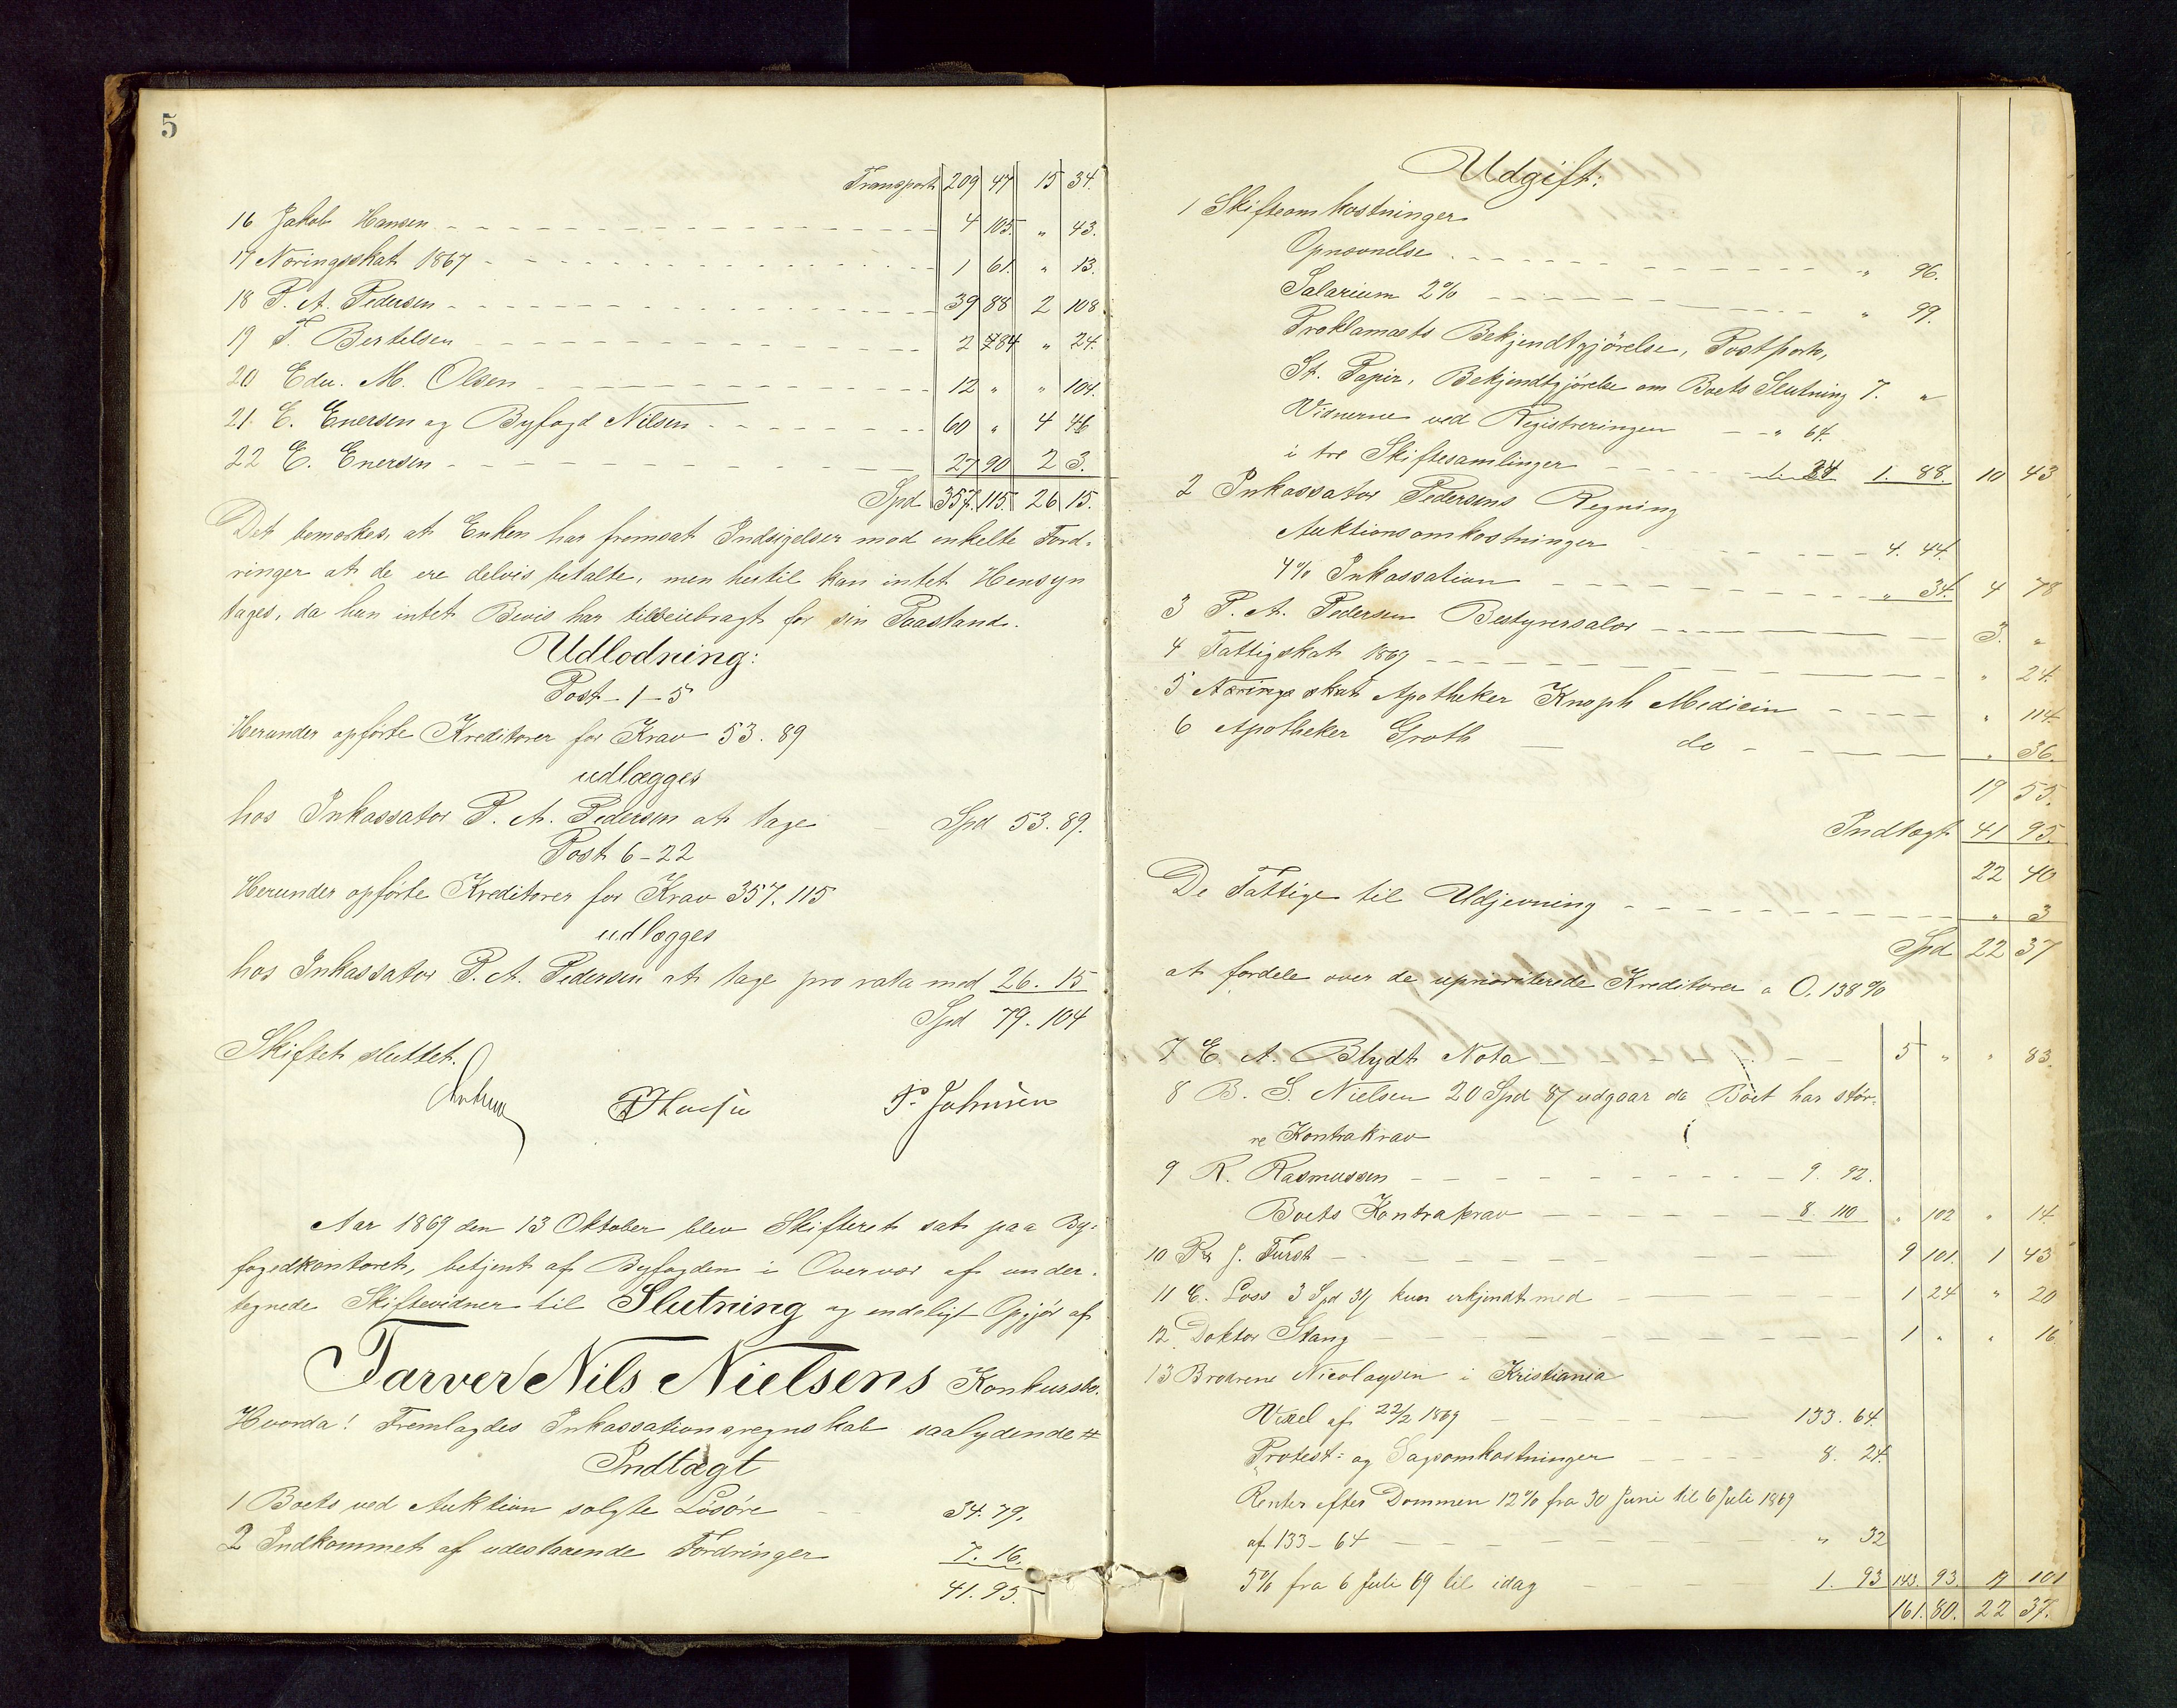 5
Transport 209 47 15 34.
16 Jakob Hansen 4 105. " 43.
17 Næringsskat 1867 1 61. " 13.
18 P. A. Pedersen 39 88 2 108.
19 T. Bertelsen 2 84 " 24.
20 Edv. M. Olsen 12 " " 104.
21. E. Enersen og Byfogd Nilsen 60 " 4 46
22 E. Enersen 27 90 2 3.
Spd 357. 115. 26 15.
Det bemærkes, at Enken har fremsat Indsigelser mod enkelte Ford-
ringer at de ere delvis betalte, men hertil kan intet Hensyn
tages, da hun intet Bevis har tilveiebragt for sin Paastand.
Udlodning:
Post 1-5
Herunder opførte Kreditorer for Krav 53. 89
udlægges
hos Inkassator P. A. Pedersen at tage Spd 53. 89.
Post 6-22
Herunder opførte Kreditorer for Krav 357. 115
udlægges
hos Inkassator P. A. Pedersen at tage pro rata med 26. 15
Spd 79. 104
Skiftet sluttet.
P. Johnsen
Aar 1869 den 13 Oktober blev Skifteret sat paa By-
fogedkontoret, betjent af Byfogden i Overvær af under-
tegnede Skiftevidner til Slutning og endeligt Opgjør af
Farver Nils Nielsens Konkursbo.
Hvorda! Fremlagdes Inkassationsregnskab saalydende #
Indtægt
1 Boets ved Auktion solgte Løsøre 34. 79.
2 Indkommet af udestaaende Fordringer 7. 16.
41. 95.
Udgift:
1 Skifteomkostninger
Opnævnelse " 96.
Salarium 2% " 99.
Proklamaets Bekjendtgjørelse, Postporto,
St. Papir, Bekjendtgjørelse om Boets Slutning 7. "
Vidnerne ved Registreringen " 64.
i tre Skiftesamlinger 1. 24 1. 88. 10 43
2 Inkassator Pedersens Regning
Auktionsomkostninger 4. 44.
4% Inkassation " 34. 4 78
3 P. A. Pedersen Bestyrersalær 3. "
4 Fattigskat 1869 " 24.
5 Nærings skat Apotheker Knoph Medicin " 114.
6 Apotheker Groth do " 36.
19 55.
Indtægt 41 95.
22 40
De Fattige til Udjevning " 3
Spd 22 37
at fordele over de uprioriterede Kreditorer a 0,138 %
7 E. A. Blydt Nota 5 " " 83.
8 B. S. Nielsen 20 Spd 87 udgaar da Boet har stør-
re Kontrakrav
9 R. Rasmussen 9. 92.
Boets Kontrakrav 8. 110 " 102 " 14.
10 J. Furst 9 101. 1 43
11 E. Loss 3 Spd 37 kun erkjendt med 1 24 " 20
12 Doktor Stang 1 " " 16
13 Brødrene Nicolaysen i Kristiania
Vexel af 22/2 1869 133. 64.
Protest- og Sagsomkostninger 8. 24.
Renter efter Dommen 12% fra 30 Juni til 6 Juli 1869
af 133-64 " 32
5% fra 6 Juli 69 til idag 1. 93 143. 93. 19 101
161. 80. 22 37.